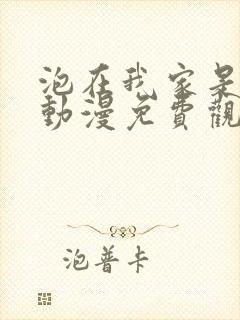 泡在我家是
動漫免費觀
泡普卡